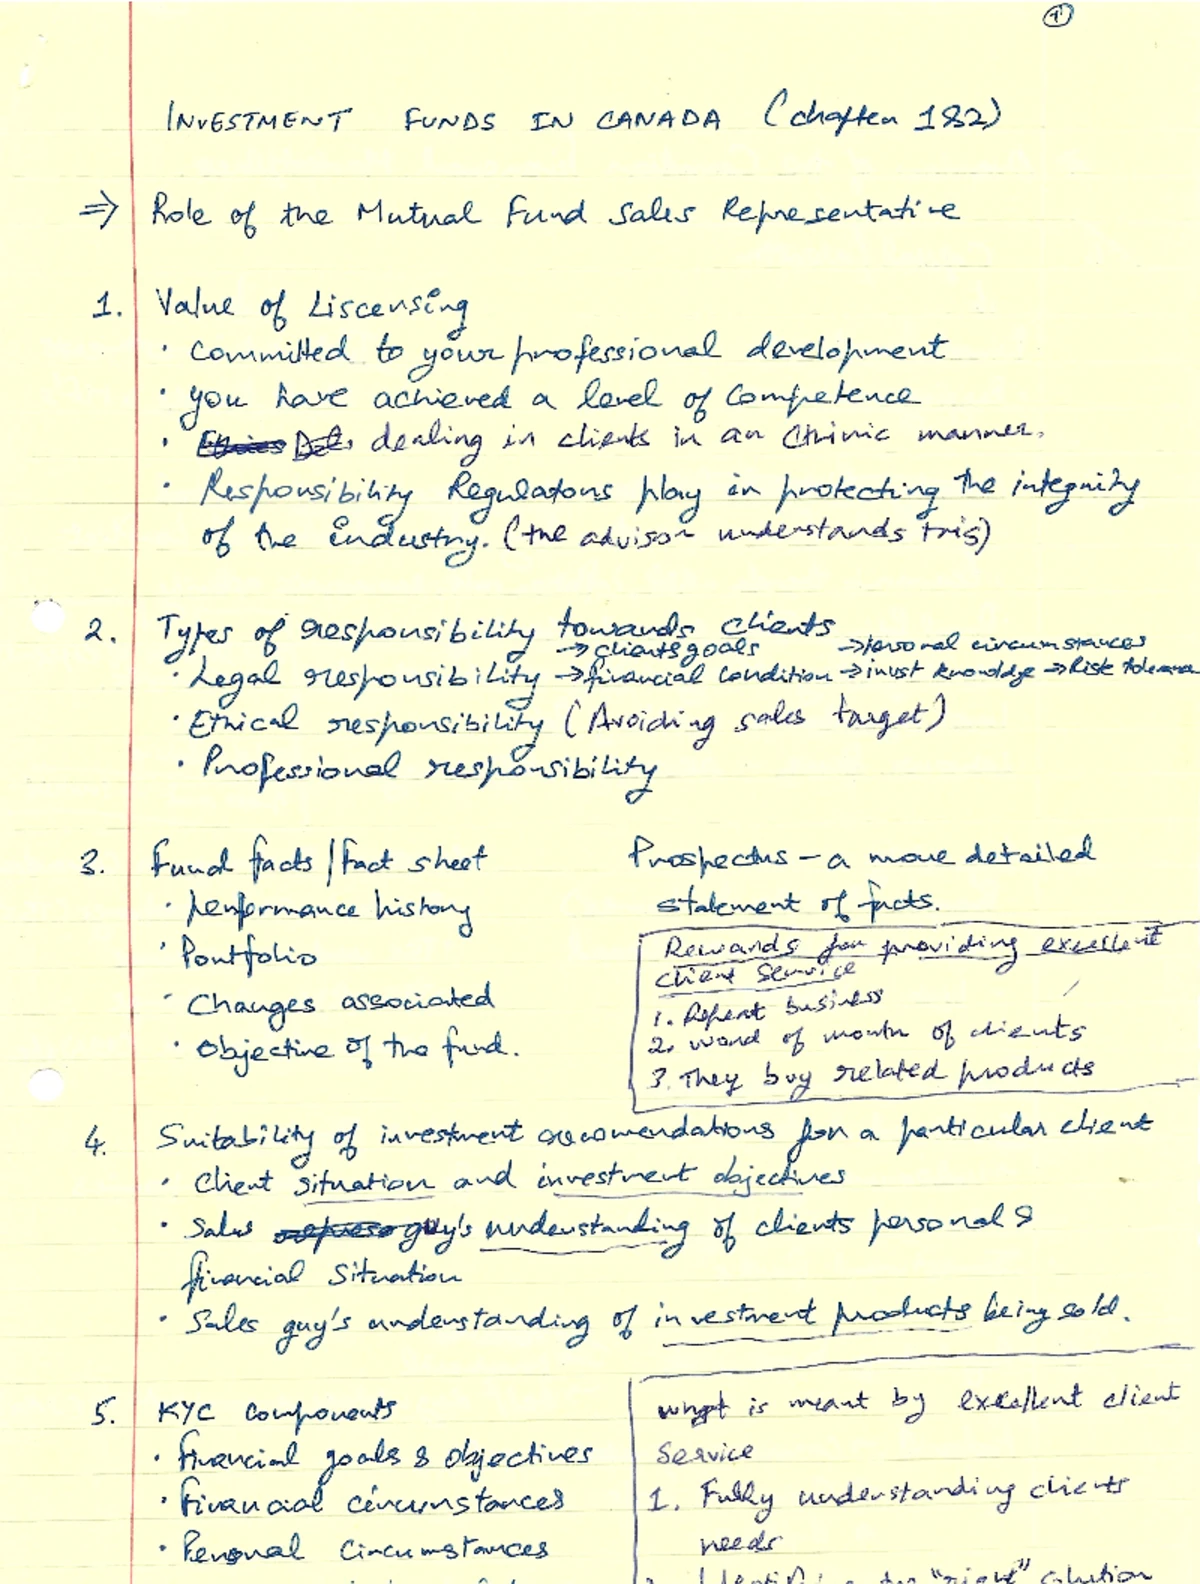 1
INVESTMENT FUNDS IN CANADA (chapter 1&2)
⇒ Role of the Mutual Fund Sales Representative
1. Value of Liscensing
· Committed to your professional development
· you have achieved a level of Competence
· dealing in clients in an manner.
· Responsibility Regulators play in protecting the integrity
of the industry. (the advisor understands this)
2. Types of responsibility towards clients
→ clients goals → personal circumstances
· Legal responsibility → financial condition → invst knowldge → Risk tolerance
· Ethical responsibility (Avoiding sales target)
· Professional responsibility
3. Fund facts / fact sheet
· performance history
· Portfolio
· Changes associated
· Objective of the fund.
Prospectus - a more detailed
statement of facts.
Rewards for providing excellent
client Service
1. Repeat business
2. word of mouth of clients
3. They buy related products
4. Suitability of investment recomendations for a particular client
· Client situation and investment objectives
· Sales guy's understanding of clients personal &
financial Situation
· Sales guy's understanding of investment products being sold.
5. KYC Components
· financial goals & objectives
· financial circumstances
· Personal Circumstances
what is meant by excellent client
Service
1. Fully understanding clients
needs